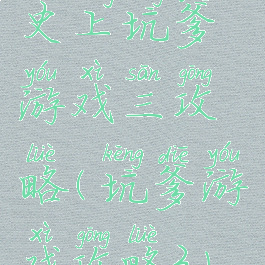 史上坑爹
yóu xì sān gōng
游戏三攻
lüè kēng diē yóu
略(坑爹游
xì gōng lüè
戏攻略3)